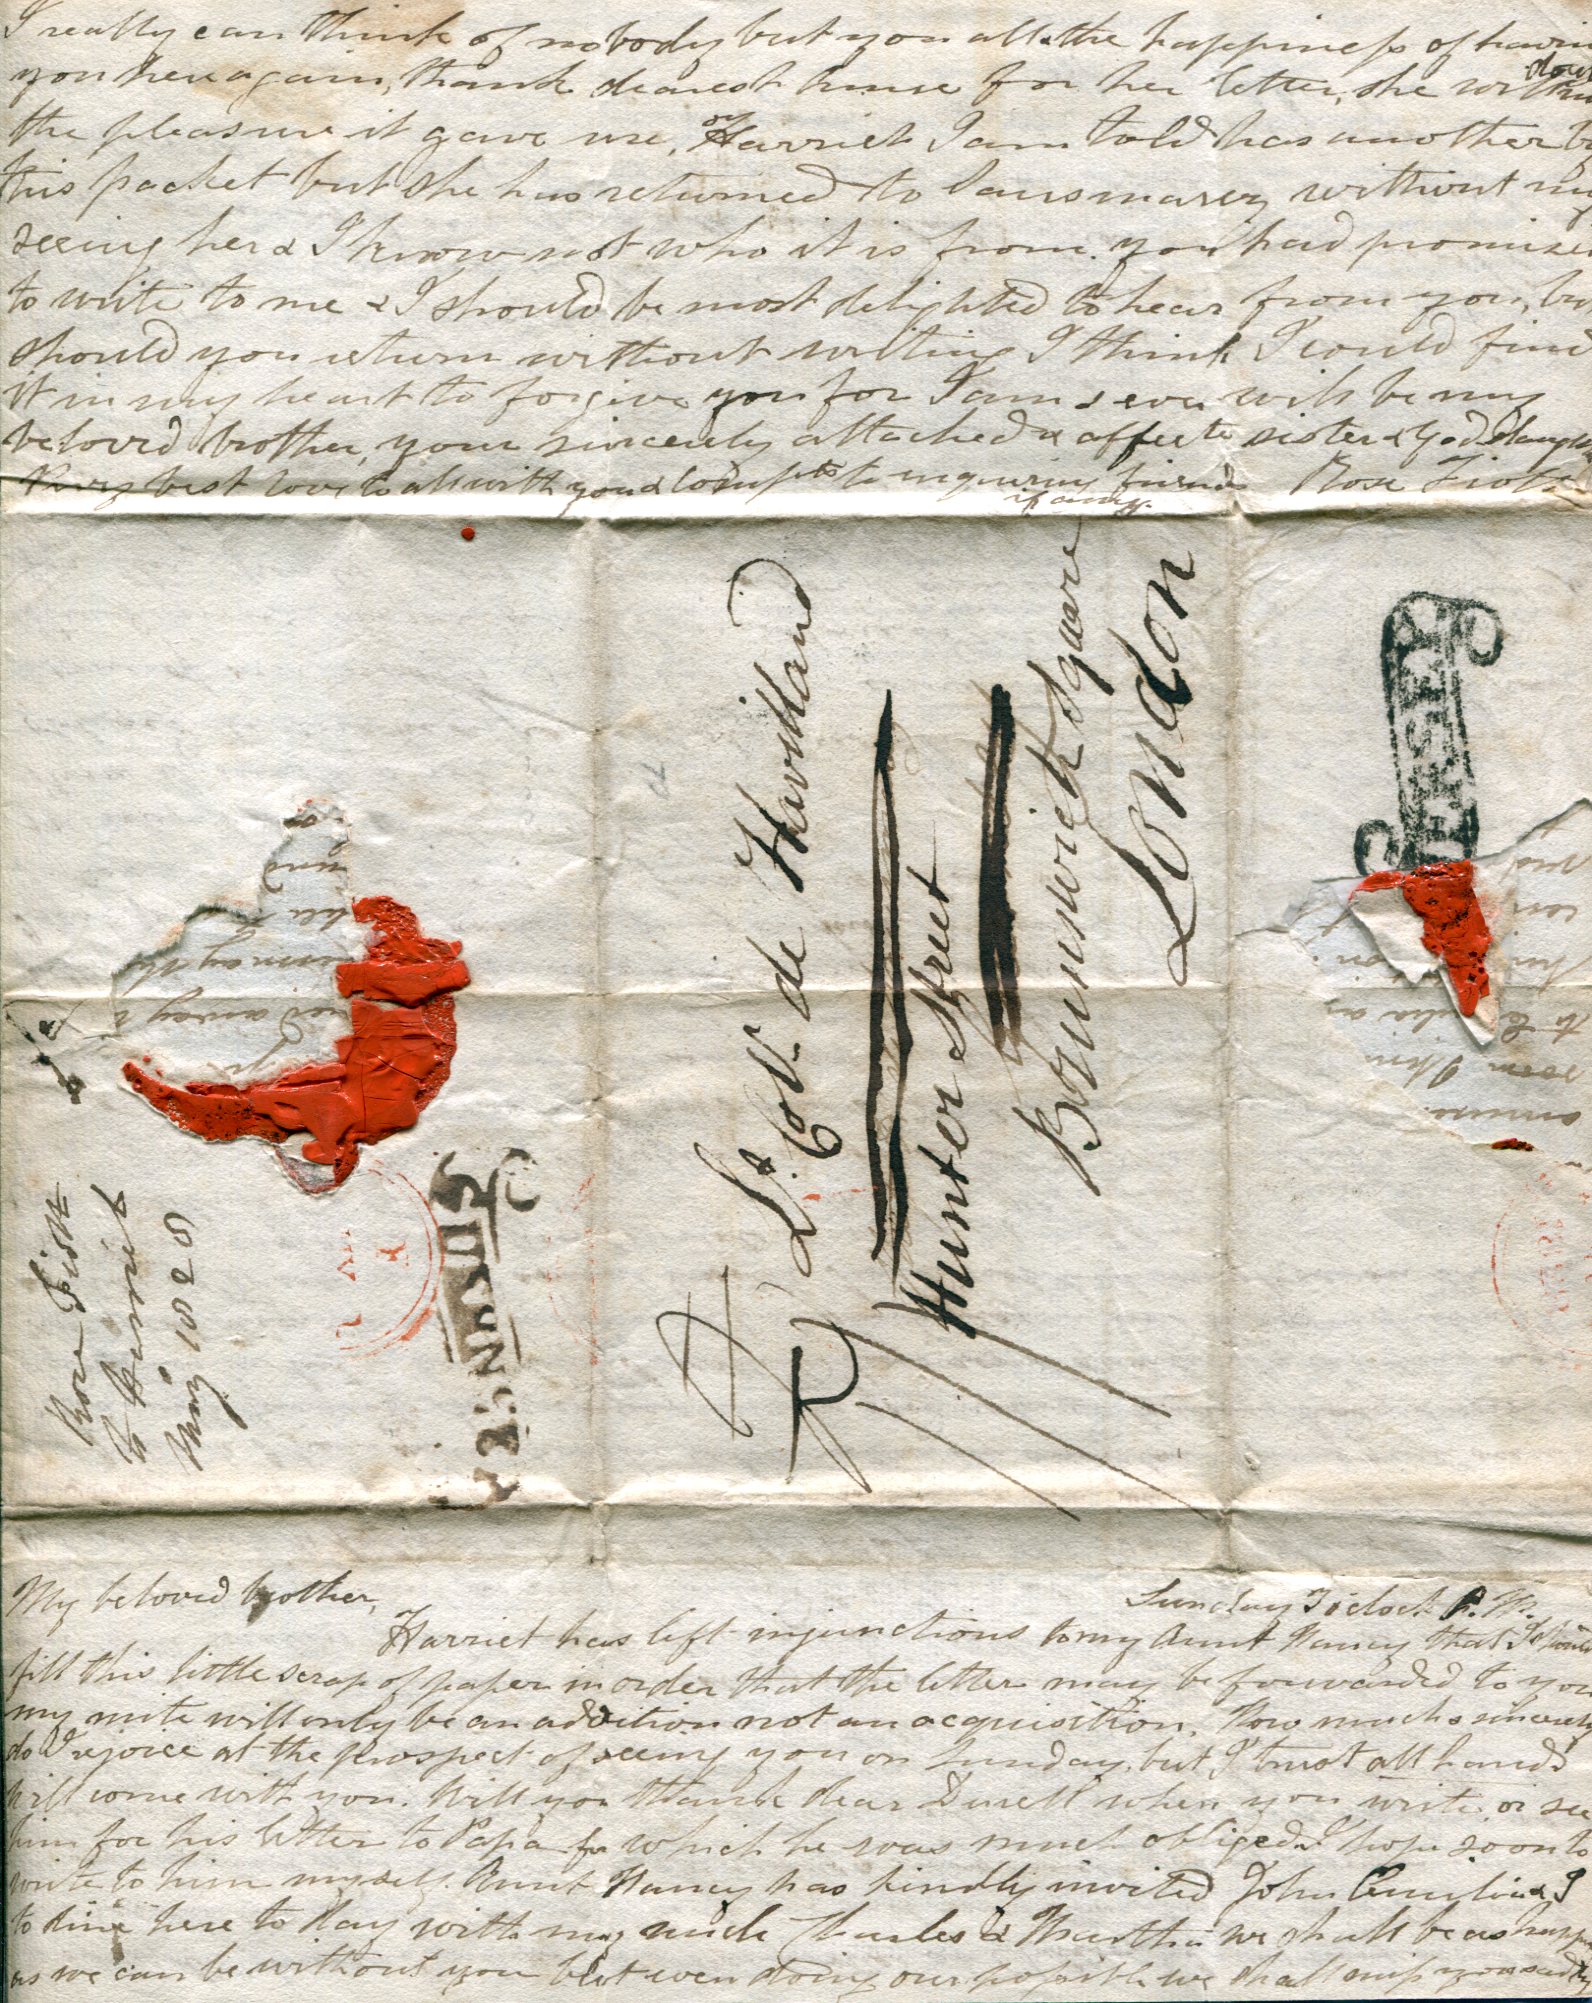 I really can think of nobody but you all & the happiness of havin
you here again, thank dearest for her letter, she will
down
the pleasure it gave me, Harriet I am told has another by
or
this packet but she has returned to Sausmarez without my
seeing her & I know not who it is from. you had promised
to write to me & I should be most delighted to hear from you, bu
should you return without writing I think I could find
it in my heart to forgive you for I am & ever will be my
beloved brother, your sincerely attached & affecte sister & God daugh
Very best love to all with you & Compts to inquiring friends Rose
if any.
Lt. Col. de Havilland
Hunter Street
Brunswick Square
London
JERSEY
GUERNSEY
Rose
to Harriet
May 1825
My beloved brother,
Sunday 3 oclock P.M.
Harriet has left injunctions to my Aunt Nancy that I should
fill this little scrap of paper in order that the letter may be forwarded to you
my mite will only be an addition not an acquisition. How much & sincerely
do I rejoice at the prospect of seeing you on Sunday, but I trust all hands
will come with you. Will you thank dear Durell when you write or see
him for his letter to Papa for which he was much obliged. I hope soon to
write to him myself. Aunt Nancy has kindly invited John & I
to dine here to day with my uncle Charles & Martha we shall be as happy
as we can be without you but even doing our possible we shall miss you sadly